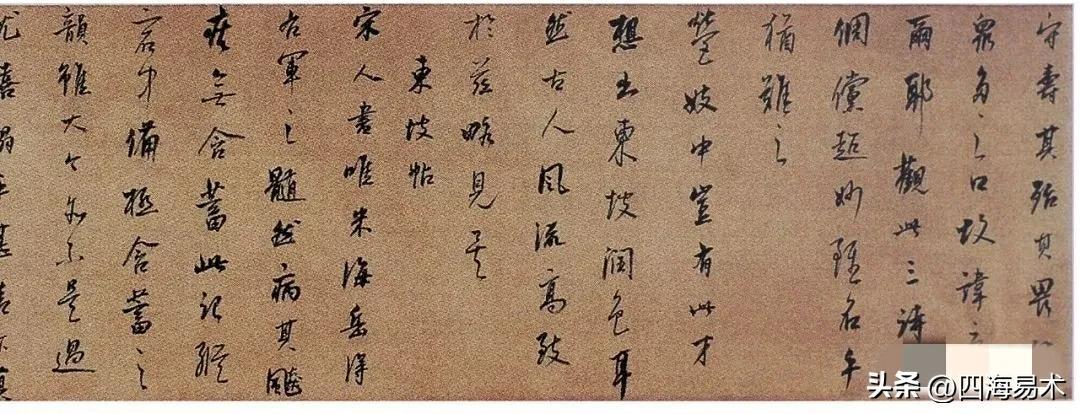 守壽其殆其畏
眾多之口故諱之
爾耶觀此三詩
倜儻超妙雖名手
猶難之
營妓中豈有此才
想出東坡潤色耳
然古人風流高致
於茲略見云
東坡帖
宋人書唯米海岳得
右軍之髓然病其飈
疾無含蓄此
含蓄之
韻雖大令亦不是過
尤喜
头条 @四海易术